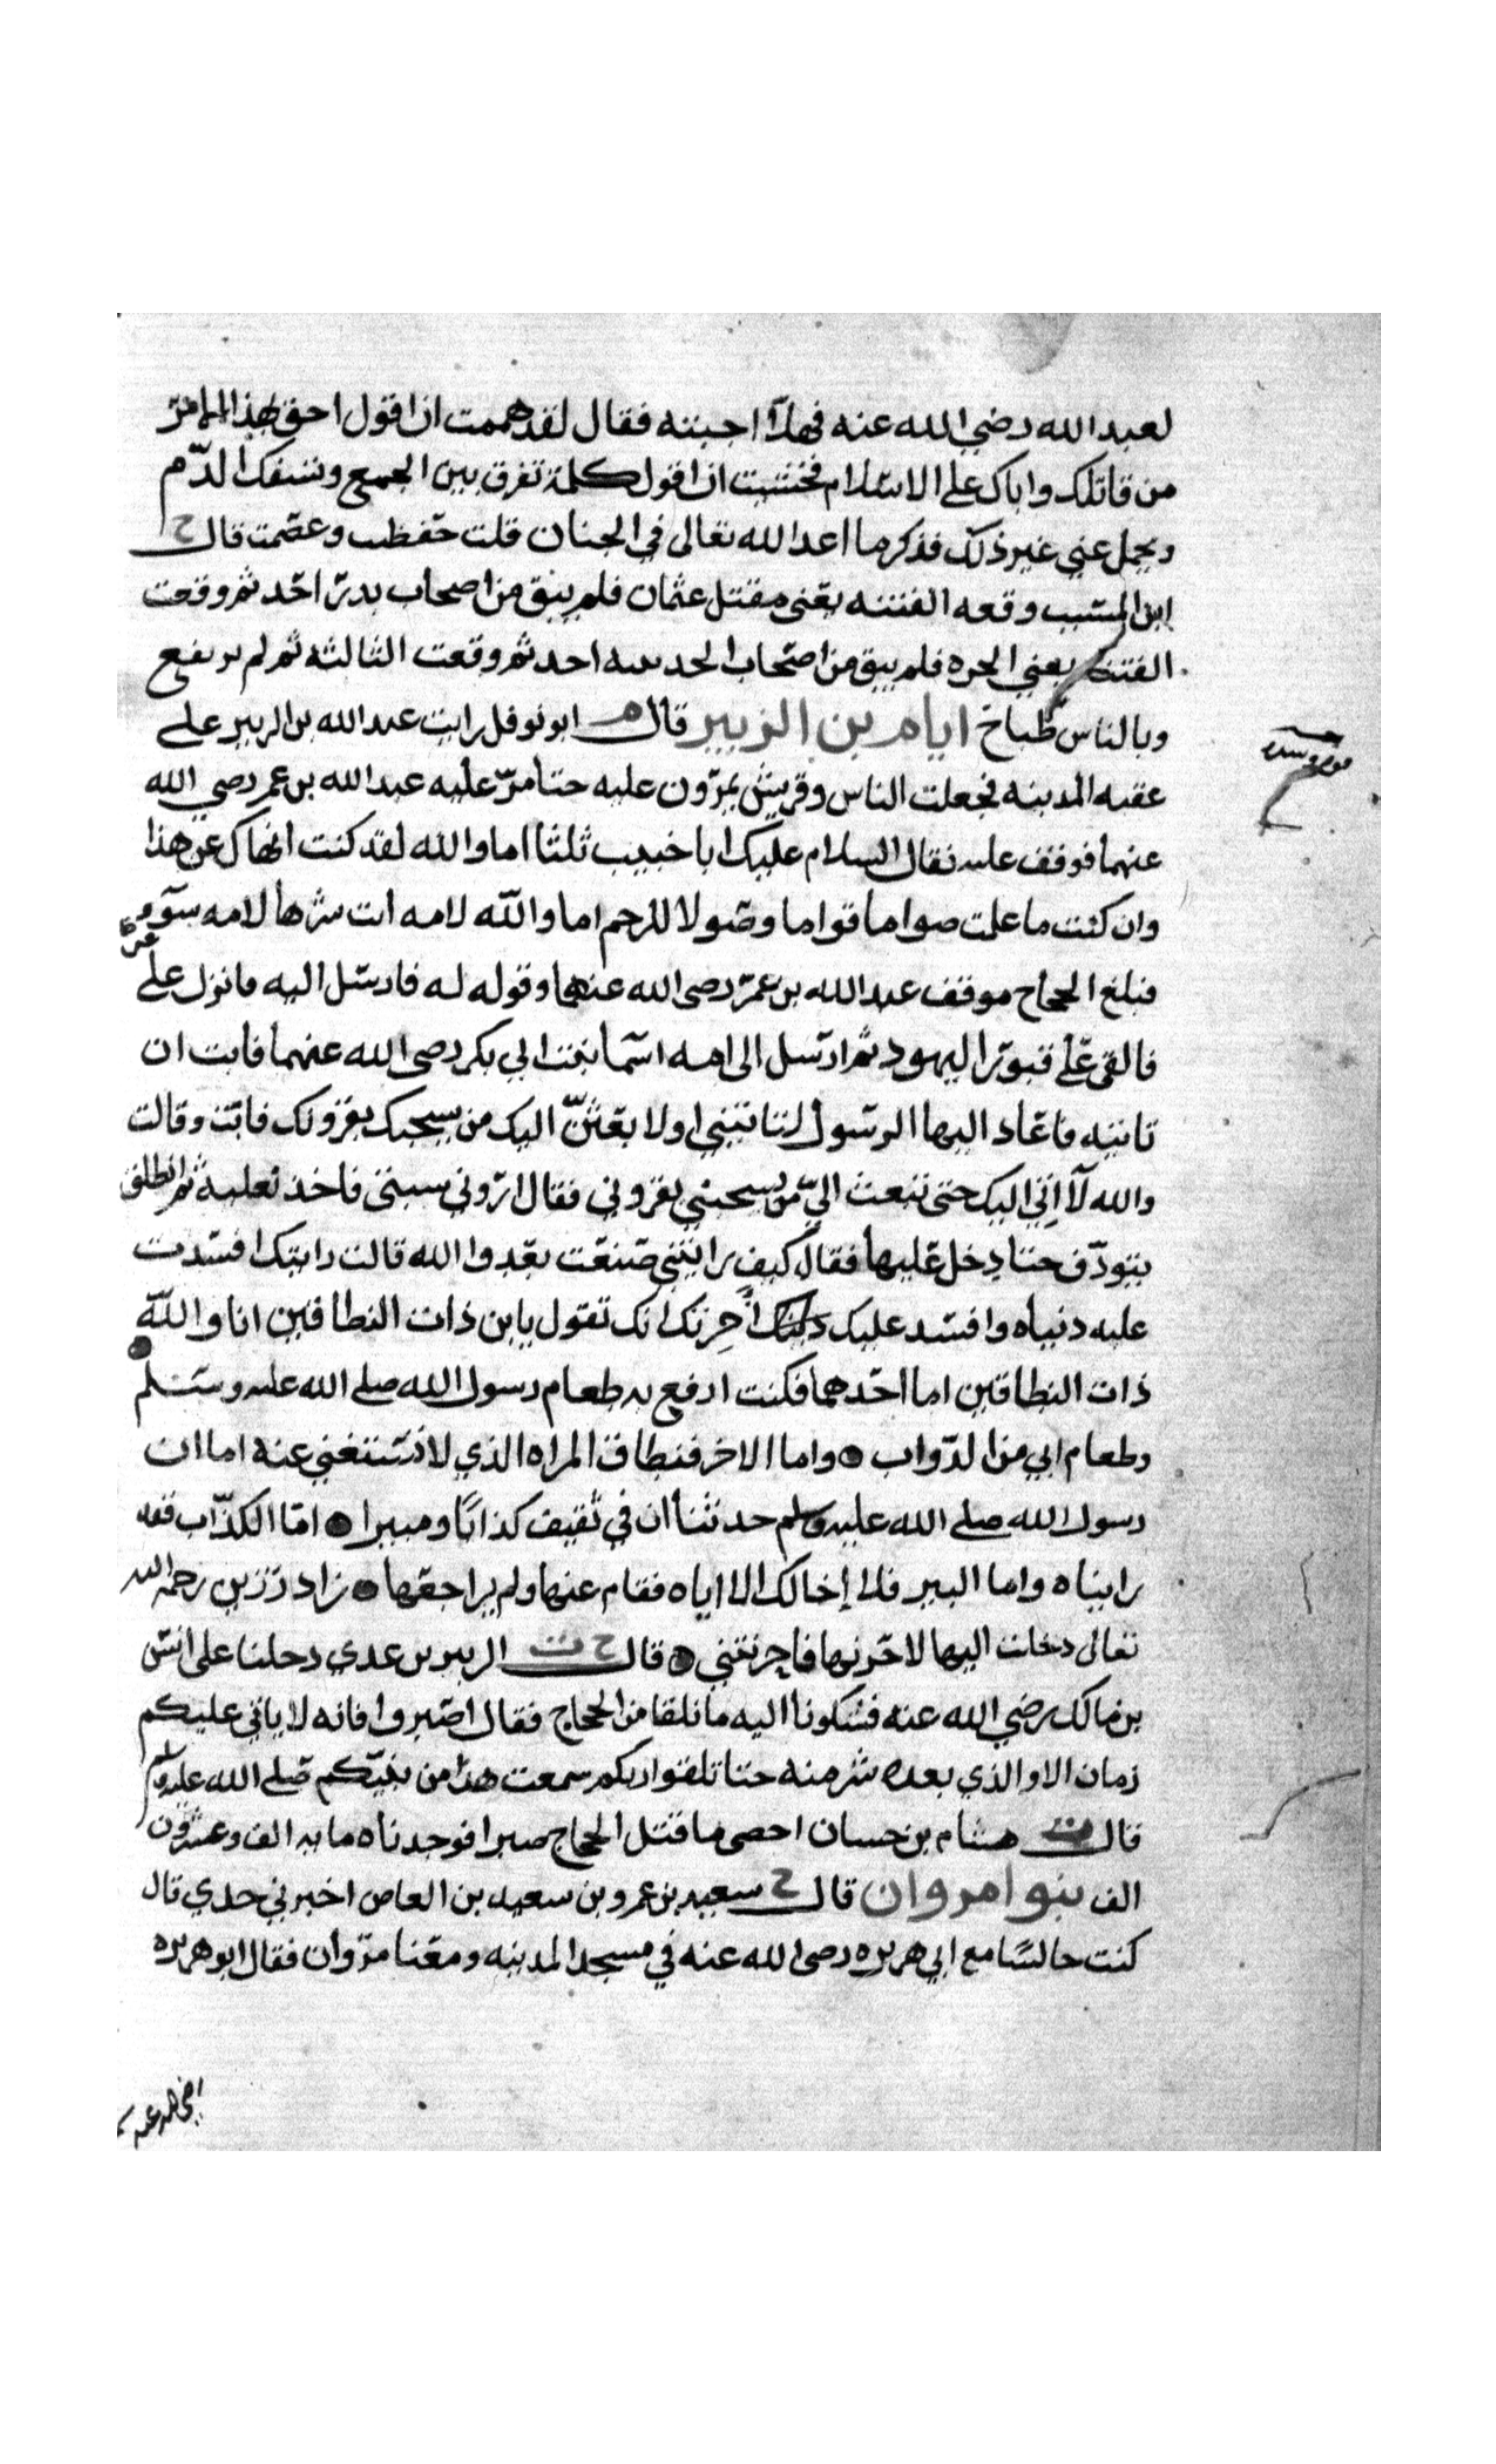 لعبد الله رضي الله عنه فهلا اجبتنه فقال لقد هممت ان اقول احق بهذا الامر
من قاتلك واباك على الاسلام فخشيت ان اقول كلمة تفرق بين الجمع وتسفك الدم
ويحمل عني غير ذلك فذكر ما اعد الله تعالى في الجنان قلت حفظت وعصمت قال خ
ابن المسيب وقعه الفتنه يعني مقتل عثمان فلم يبق من اصحاب بدر احد ثم وقعت
الفتنة يعني الحره فلم يبق من اصحاب الحديبيه احد ثم وقعت الثالثه ثم لم يرتفع
وبالناس طباخ ايام بن الزبير قال م ابو نوفل رايت عبد الله بن الزبير على
عقبه المدينه فجعلت الناس وقريش يمرون عليه حتا مر عليه عبد الله بن عمر رضي الله
عنهما فوقف عليه فقال السلام عليك ابا خبيب ثلثا اما والله لقد كنت انهاك عن هذا
وان كنت ما علمت صواما قواما وصولا للرحم اما والله لامه انت شرها لامه سوء
فبلغ الحجاج موقف عبد الله بن عمر رضي الله عنهما وقوله له فارسل اليه فانزل على
فالقي على قبور اليهود ثم ارسل الى امه اسما بنت ابي بكر رضي الله عنهما فابت ان
تانيه فاعاد اليها الرسول لتاتيني او لا بعثن اليك من يسحبك بقرونك فابت وقالت
والله لا اتي اليك حتى تبعث الي من يسحبني بقروني فقال اروني سبتى فاخذ نعليه ثم انطلق
يتودف حتا دخل عليها فقال كيف رايتني صنعت بعدو الله قالت رايتك افسدت
عليه دنياه وافسد عليك دينك اخرتك انك تقول يابن ذات النطاقين انا والله
ذات النطاقين اما احدهما فكنت ارفع به طعام رسول الله صلى الله عليه وسلم
وطعام ابي من الدواب واما الاخر فنطاق المراه الذي لا تستغني عنه اما ان
رسول الله صلى الله عليه وسلم حدثنا ان في ثقيف كذابا ومبيرا اما الكذاب فقد
رايناه واما البير فلا إخالك الا اياه فقام عنها ولم يراجعها زاد رزين رحمه الله
تعالى دخلت اليها لاحزنها فاحزنتني قال خ ت الزبير بن عدي دخلنا على انس
بن مالك رضي الله عنه فشكونا اليه ما نلقا من الحجاج فقال اصبروا فانه لا ياتي عليكم
زمان الا والذي بعده شر منه حتا تلقوا ربكم سمعت هذا من نبيكم صلى الله عليه وسلم
قال ت هشام بن حسان احصى ما قتل الحجاج صبرا فوجدناه مايه الف وعشرون
الف بنوا مروان قال خ سعيد بن عمرو بن سعيد بن العاص اخبرني جدي قال
كنت جالسا مع ابي هريره رضي الله عنه في مسجد المدينه ومعنا مروان فقال ابو هريره